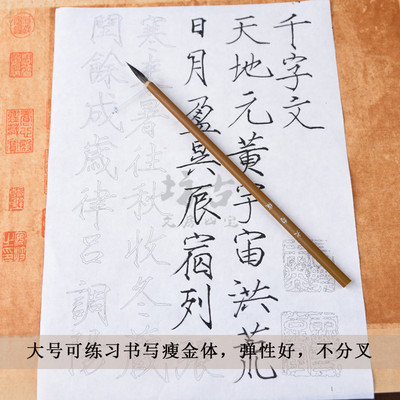 千字文
天地元黃宇宙洪荒
日月盈昃辰宿列
寒來暑往秋收冬藏
閏餘成歲律呂調陽
大号可练习书写瘦金体，弹性好，不分叉